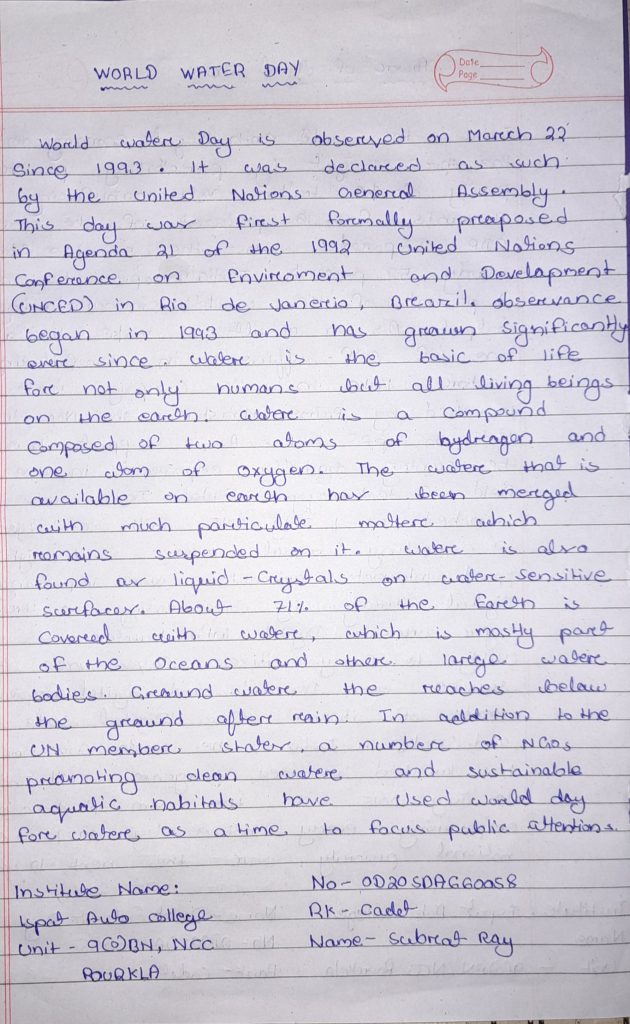 WORLD WATER DAY
Date
Page
World water Day is observed on March 22
Since 1993. It was declared as such
by the United Nations General Assembly.
This day was first formally proposed
in Agenda 21 of the 1992 United Nations
Conference on Enviroment and Development
(UNCED) in Rio de Janerio, Brazil. observance
began in 1993 and has grown significantly
ever since. water is the basic of life
for not only humans but all living beings
on the earth. water is a compound
Composed of two atoms of hydrogen and
one atom of oxygen. The water that is
available on earth has been merged
with much particulate matter which
remains suspended on it. water is also
found as liquid-Crystals on water-sensitive
surfaces. About 71% of the Earth is
Covered with water, which is mostly part
of the Oceans and other large water
bodies. Ground water the reaches below
the ground after rain. In addition to the
UN member states, a number of NGOs
promoting clean water and sustainable
aquatic habitals have used world day
for water as a time to focus public attentions.
Institute Name:
Ispat Auto college
Unit - 9(O)BN, NCC
ROURKLA
No - OD20SDA660058
RK - Cadet
Name - Subrat Ray